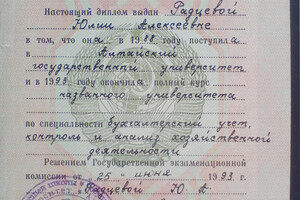 Настоящий диплом выдан Радцевой
Юлии Алексеевне
в том, что она в 1988 году поступила
в Алтайский
государственный университет
и в 1993 году окончила полный курс
названного университета
по специальности бухгалтерский учет,
контроль и анализ хозяйственной
деятельности
Решением Государственной экзаменационной
комиссии от 25 июня 1993 г.
Радцевой Ю. А.